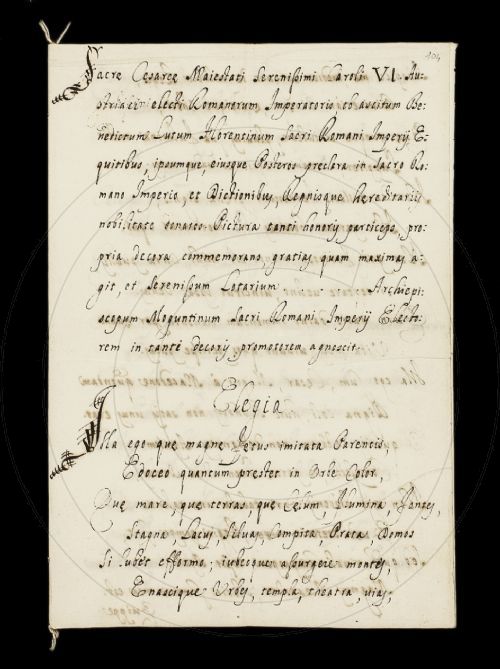 104
Sacre Cesaree Maiestati Serenissimi Caroli VI Au=
striaci electi Romanorum Imperatoris, ob ascitum Be=
nedictum Lutum Florentinum Sacri Romani Imperij E=
quitibus, ipsumque, eiusque Posteros preclara in Sacro Ro=
mano Imperio, et Dictionibus, Regnisque hereditarijs
nobilitate donatos. Pictura tanti honoris particeps, pro=
pria decora commemorans, gratias quam maximas a=
git, et Serenissum Lotarium Archiepi=
scopum Moguntinum Sacri Romani Imperij Electo=
rem in tanti decoris promotorem agnoscit.
Elegia
Illa ego que magne fetus imitata Parentis,
Edoceo quantum prestet in Orbe Color,
Que mare, que terras, que Celum, Flumina, Fontes,
Stagna, Lacus, Silvas, Compita, Prata, Domos
Si lubet efformo, iubeoque assurgere montes,
Enascique Urbes, templa, theatra, vias,